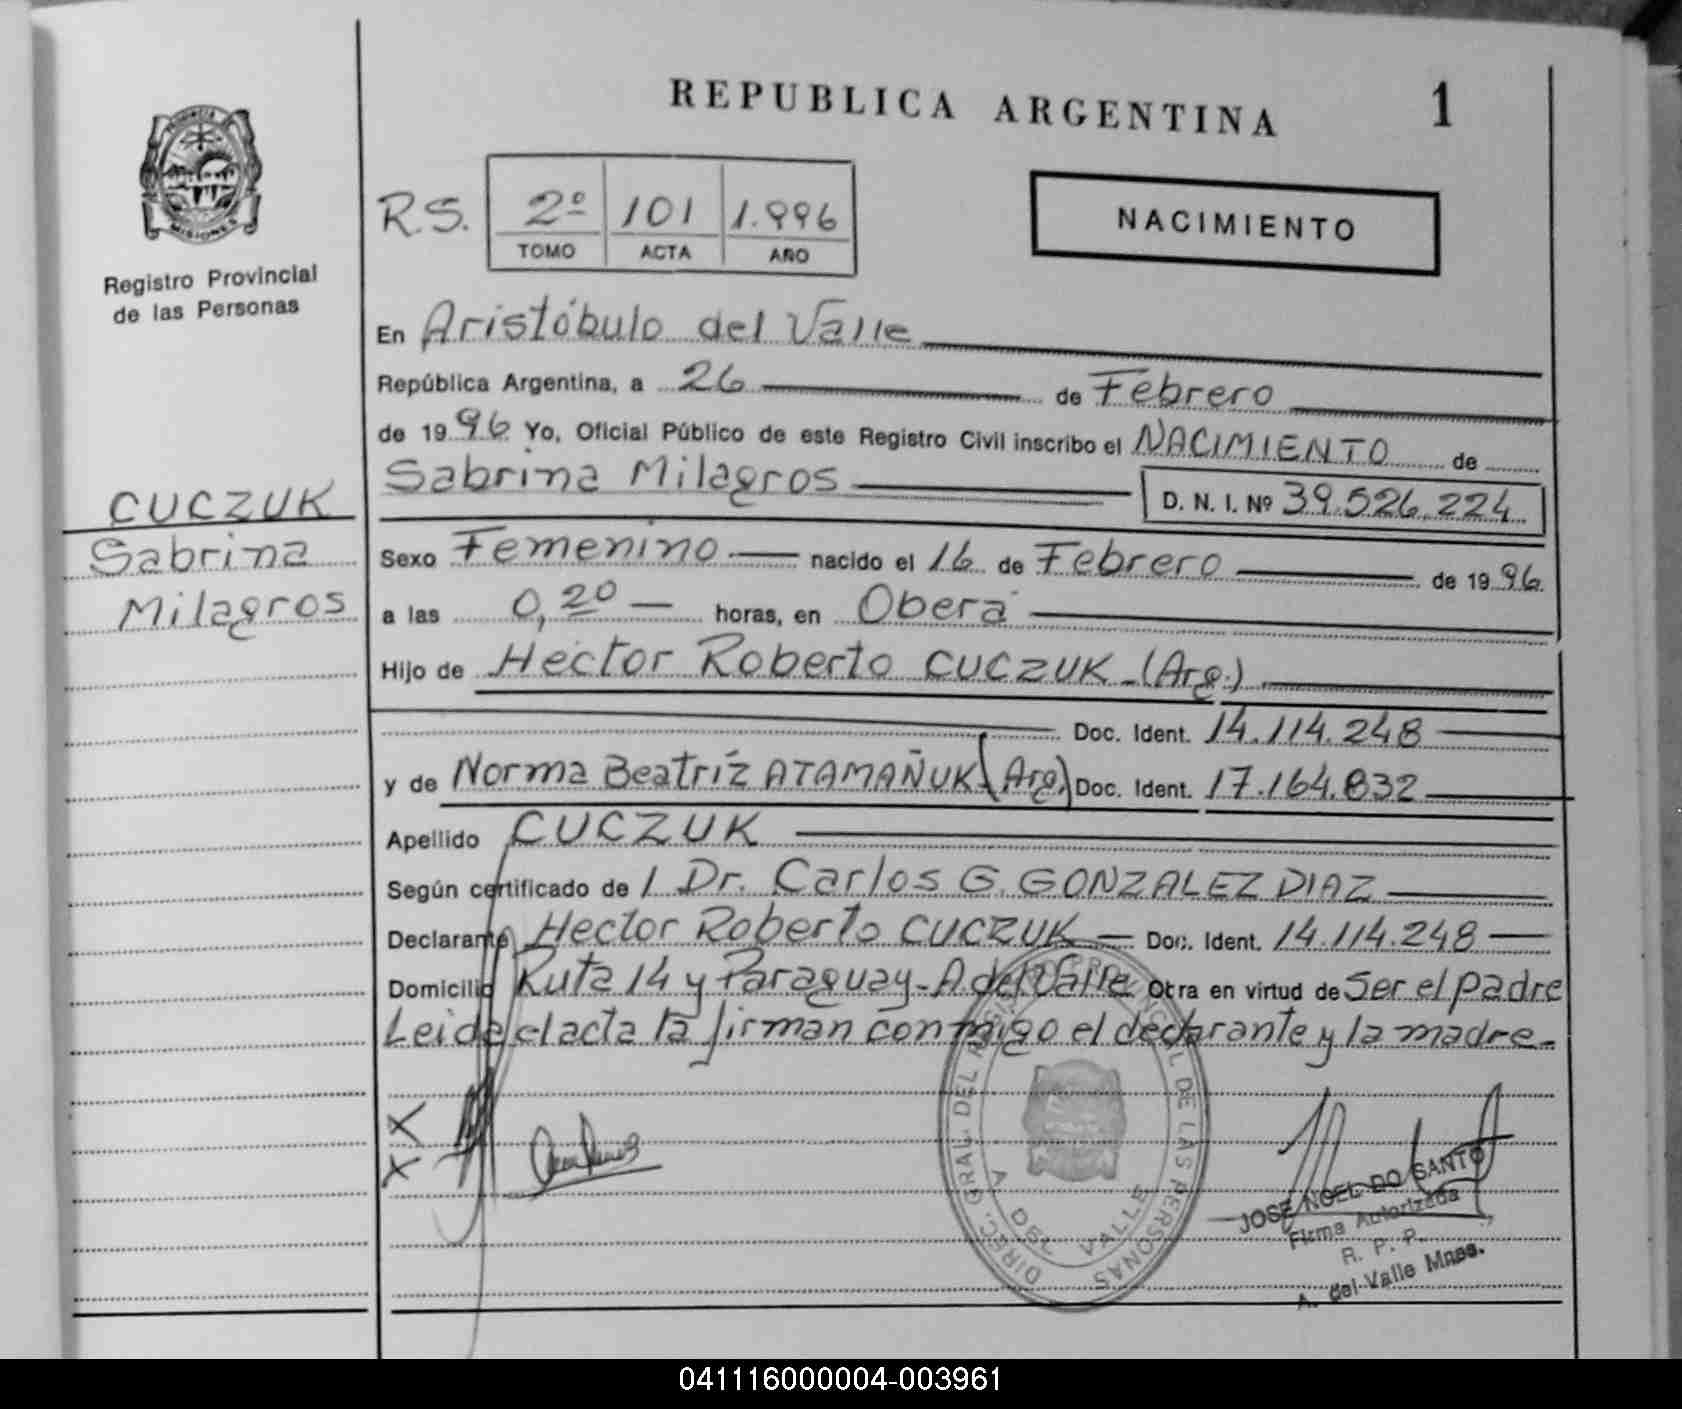 REPUBLICA ARGENTINA 1
PROVINCIA
MISIONES
Registro Provincial
de las Personas
R.S. 2º 101 1.996
TOMO ACTA AÑO
NACIMIENTO
En Aristóbulo del Valle
República Argentina, a 26 de Febrero
de 1996 Yo, Oficial Público de este Registro Civil inscribo el NACIMIENTO de
Sabrina Milagros D. N. I. Nº 39.526.224
CUCZUK
Sabrina
Milagros
Sexo Femenino nacido el 16 de Febrero de 1996
a las 0,20 horas, en Oberá
Hijo de Hector Roberto CUCZUK (Arg.)
Doc. Ident. 14.114.248
y de Norma Beatríz ATAMAÑUK (Arg.) Doc. Ident. 17.164.832
Apellido CUCZUK
Según certificado de / Dr. Carlos G. GONZALEZ DIAZ
Declarante Hector Roberto CUCZUK Doc. Ident. 14.114.248
Domicilio Ruta 14 y Paraguay - A del Valle Otra en virtud de Ser el padre
Leida el acta la firman conmigo el declarante y la madre.
X
X
DIREC. GRAL. DEL REGISTRO PROVINCIAL DE LAS PERSONAS
A DEL VALLE
JOSE NOEL DO SANTO
Firma Autorizada
R. P. P.
A. del Valle Mnes.
041116000004-003961